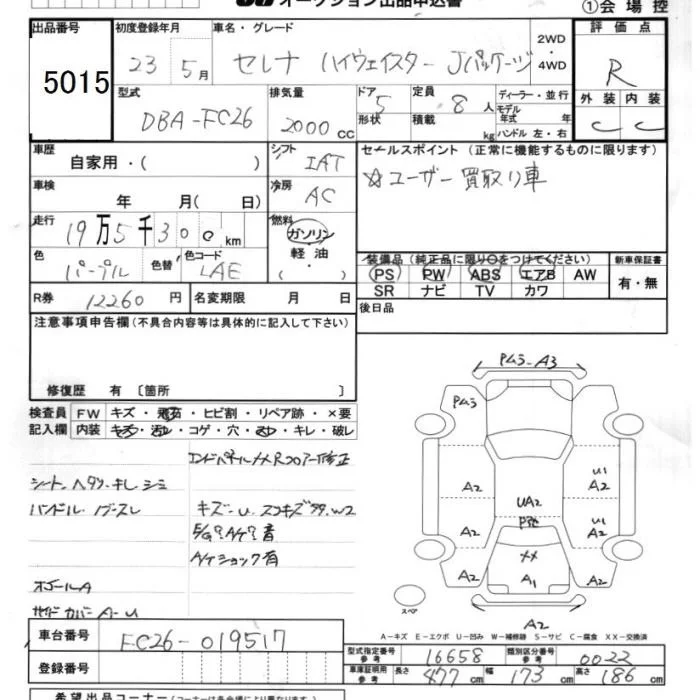 オークション出品申込書
①会場控
出品番号
5015
初度登録年月
23 5月
車名・グレード
セレナ ハイウェイスター Jパッケージ
2WD
・
4WD
評価点
R
外装 内装
C C
型式
DBA-FC26
排気量
2000cc
ドア 5
形状
定員 8人
積載 kg
ディーラー・並行
モデル
年式 年
ハンドル 左・右
車歴
自家用・( )
シフト
IAT
セールスポイント (正常に機能するものに限ります)
☆ユーザー買取り車
車検
年 月( 日)
冷房
AC
走行
19万5千300km
燃料
ガソリン
軽油
・
( )
色
パープル
色替
色コード
LAE
装備品(純正品に限り○をつけてください)
PS PW ABS エアB AW
SR ナビ TV カワ
新車保証書
有・無
R券 12260円
名変期限 月 日
後日品
注意事項申告欄(不具合内容等は具体的に記入して下さい)
修復歴 有 〔箇所 〕
検査員
記入欄
FW キズ・飛石・ヒビ割・リペア跡・×要
内装 キズ・汚れ・コゲ・穴・・キレ・破レ
シート、ヘタリ・キレ・シミ
ハンドル
キズ-U
A/C ショック有
A-U
Pムラ-A3
Pムラ
U1
A2
A2
UA2
U1
A2
A2
A2
A1
A2
A2
スペア
A-キズ E-エクボ U-凹み W-補修跡 S-サビ C-腐食 XX-交換済
車台番号
FC26-019517
登録番号
型式指定番号
参考
16658
類別区分番号
参考
0022
車庫証明用
参考
長さ 477cm
幅 173cm
高さ 186cm
希望出品コーナー